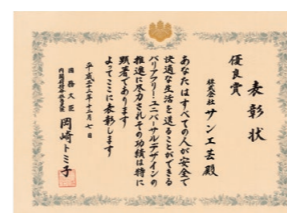 表彰状
優良賞
株式会社サン工芸殿
あなたはすべての人が安全で
快適な生活を送ることができる
バリアフリー・ユニバーサルデザインの
推進に尽力されその功績は特に
顕著であります
よってここに表彰します
平成二十二年十二月七日
内閣府特命担当大臣 岡崎トミ子